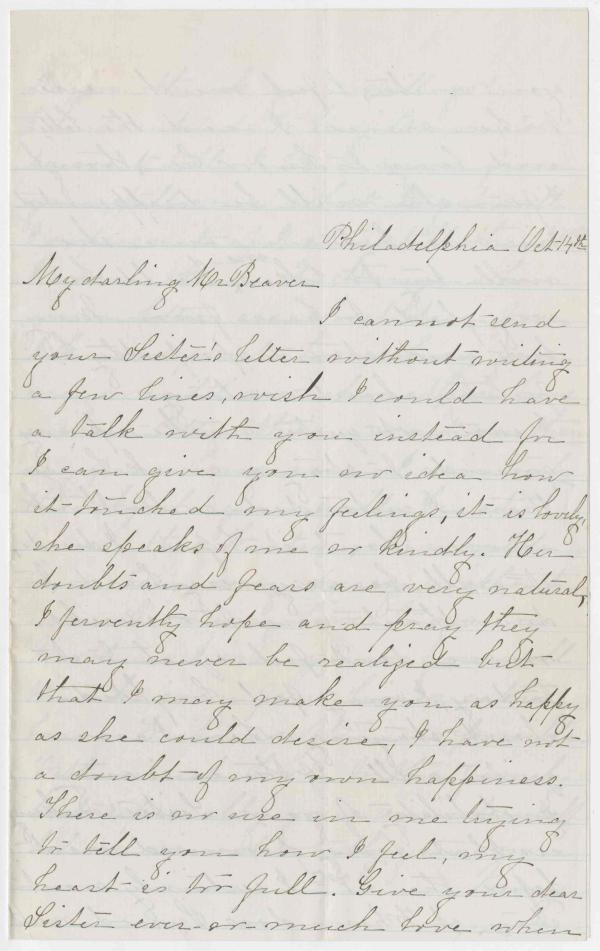 Philadelphia Oct. 14th
My darling Mr Beaver
I cannot send
your Sister's letter without writing
a few lines, wish I could have
a talk with you instead for
I can give you no idea how
it touched my feelings, it is lovely,
she speaks of me so kindly. Her
doubts and fears are very natural,
I fervently hope and pray they
may never be realized but
that I may make you as happy
as she could desire, I have not
a doubt of my own happiness.
There is no use in me trying
to tell you how I feel, my
heart is too full. Give your dear
Sister ever so much love when